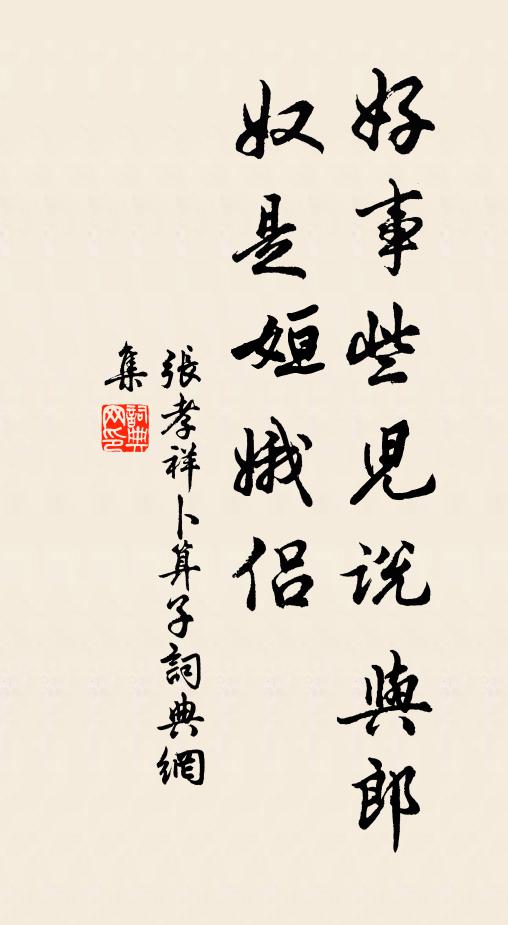 好事些兒說與郎
奴是姮娥侶
張孝祥卜算子詞典網
集
詞典
网印